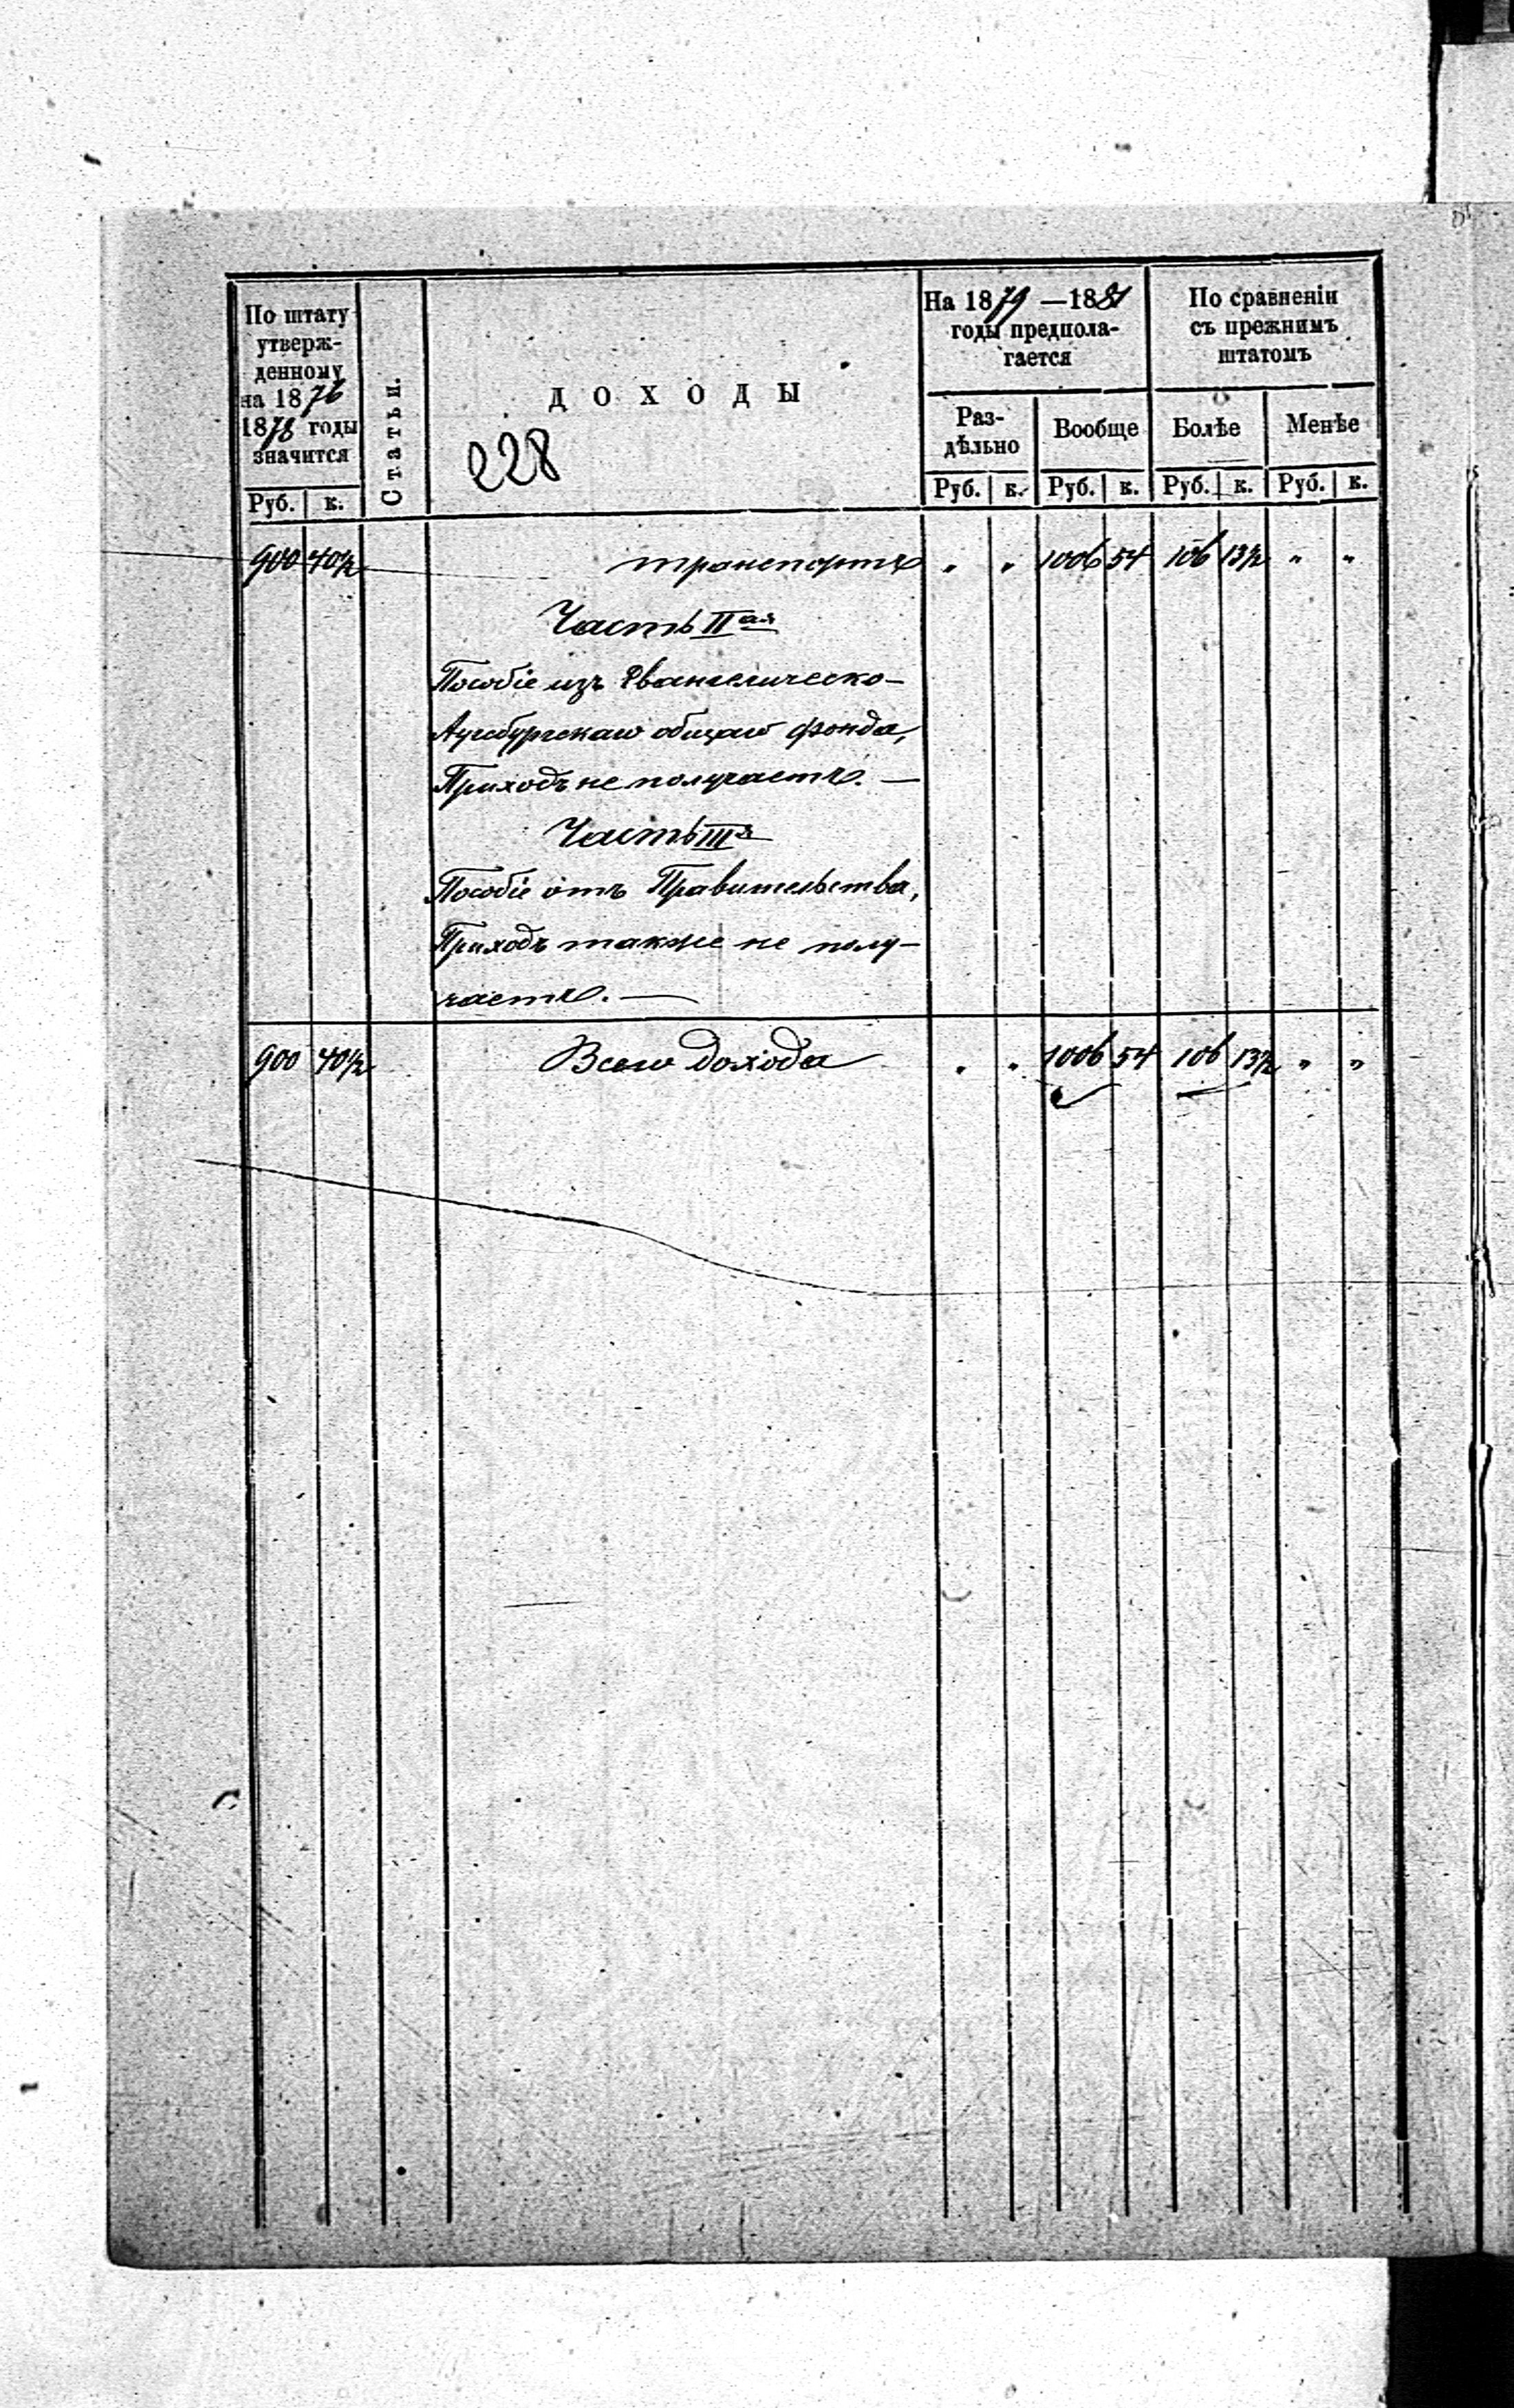 По штату утверж-
денному
на 1876
1878 годы
значится
Руб. к.
Статьи.
ДОХОДЫ
228
На 1879 —1881
годы предпола-
гается
Раз-
дѣльно
Руб. к.
Вообще
Руб. к.
По сравненіи
съ прежнимъ
штатомъ
Болѣе
Руб. к.
Менѣе
Руб. к.
900 40½ транспортъ „ „ 1006 54 106 13½ „ „
Часть IIая
Пособіе изъ Евангелическо-
Аугсбургскаго общаго фонда,
Приходъ не получаетъ. —
Часть IIIя
Пособіе отъ Правительства,
Приходъ также не полу-
чаетъ. —
900 40½ Всего дохода „ „ 1006 54 106 13½ „ „